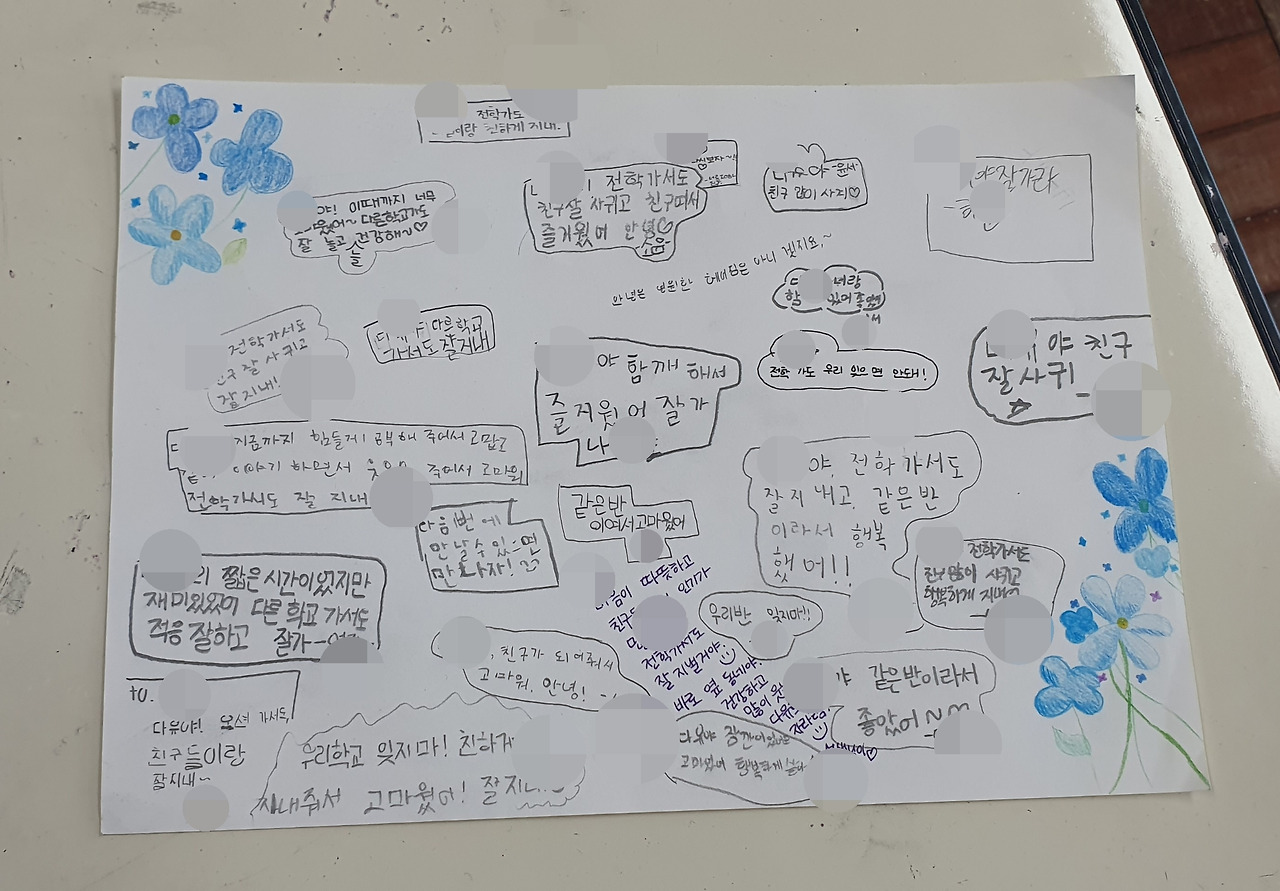 전학가도
이랑 친하게 지내.
야! 이때까지 너무
웠어~ 다른학교가도
잘 놀고 건강해~♡
늘
전학가서도
친구잘 사귀고 친구여서
즐거웠어 안녕♡
소윤
-윤서
친구 많이 사귀♡
야 잘가라
안녕은 영원한 헤어짐은 아니 겠지요,~
너랑
함 있어 좋았어
전학가서도
친구 잘 사귀고
잘지내!
다른학교
가서도 잘지내
야 함께 해서
즐거웠어 잘가
전학 가도 우리 잊으면 안돼!
야 친구
잘사귀
지금까지 힘들게 공부해 주어서 고맙고
이야기 하면서 웃 주어서 고마워
전학가서도 잘 지내
다음번에
만날수있으면
만나자!
같은반
이여서고마웠어
야, 전학가서도
잘지내고, 같은반
이라서 행복
했어!!
전학가서도
친구많이 사귀고
행복하게 지내
짧은 시간이었지만
재미있었어 다른 학교 가서도
적응 잘하고 잘가
마음이 따뜻하고
친구 인기가
전학가서도
잘 지낼거야.
바로 옆 동네야.
건강하고
많이 웃
다유
자라
우리반 잊지마!!
, 친구가 되어줘서
고마워. 안녕!
야 같은반이라서
좋았어~
to.
다유야! 가서도,
친구들이랑
잘지내~
우리학교 잊지마! 친하게
지내줘서 고마웠어! 잘지
다유야 잠깐이었지만
고마웠어 행복하게 살아